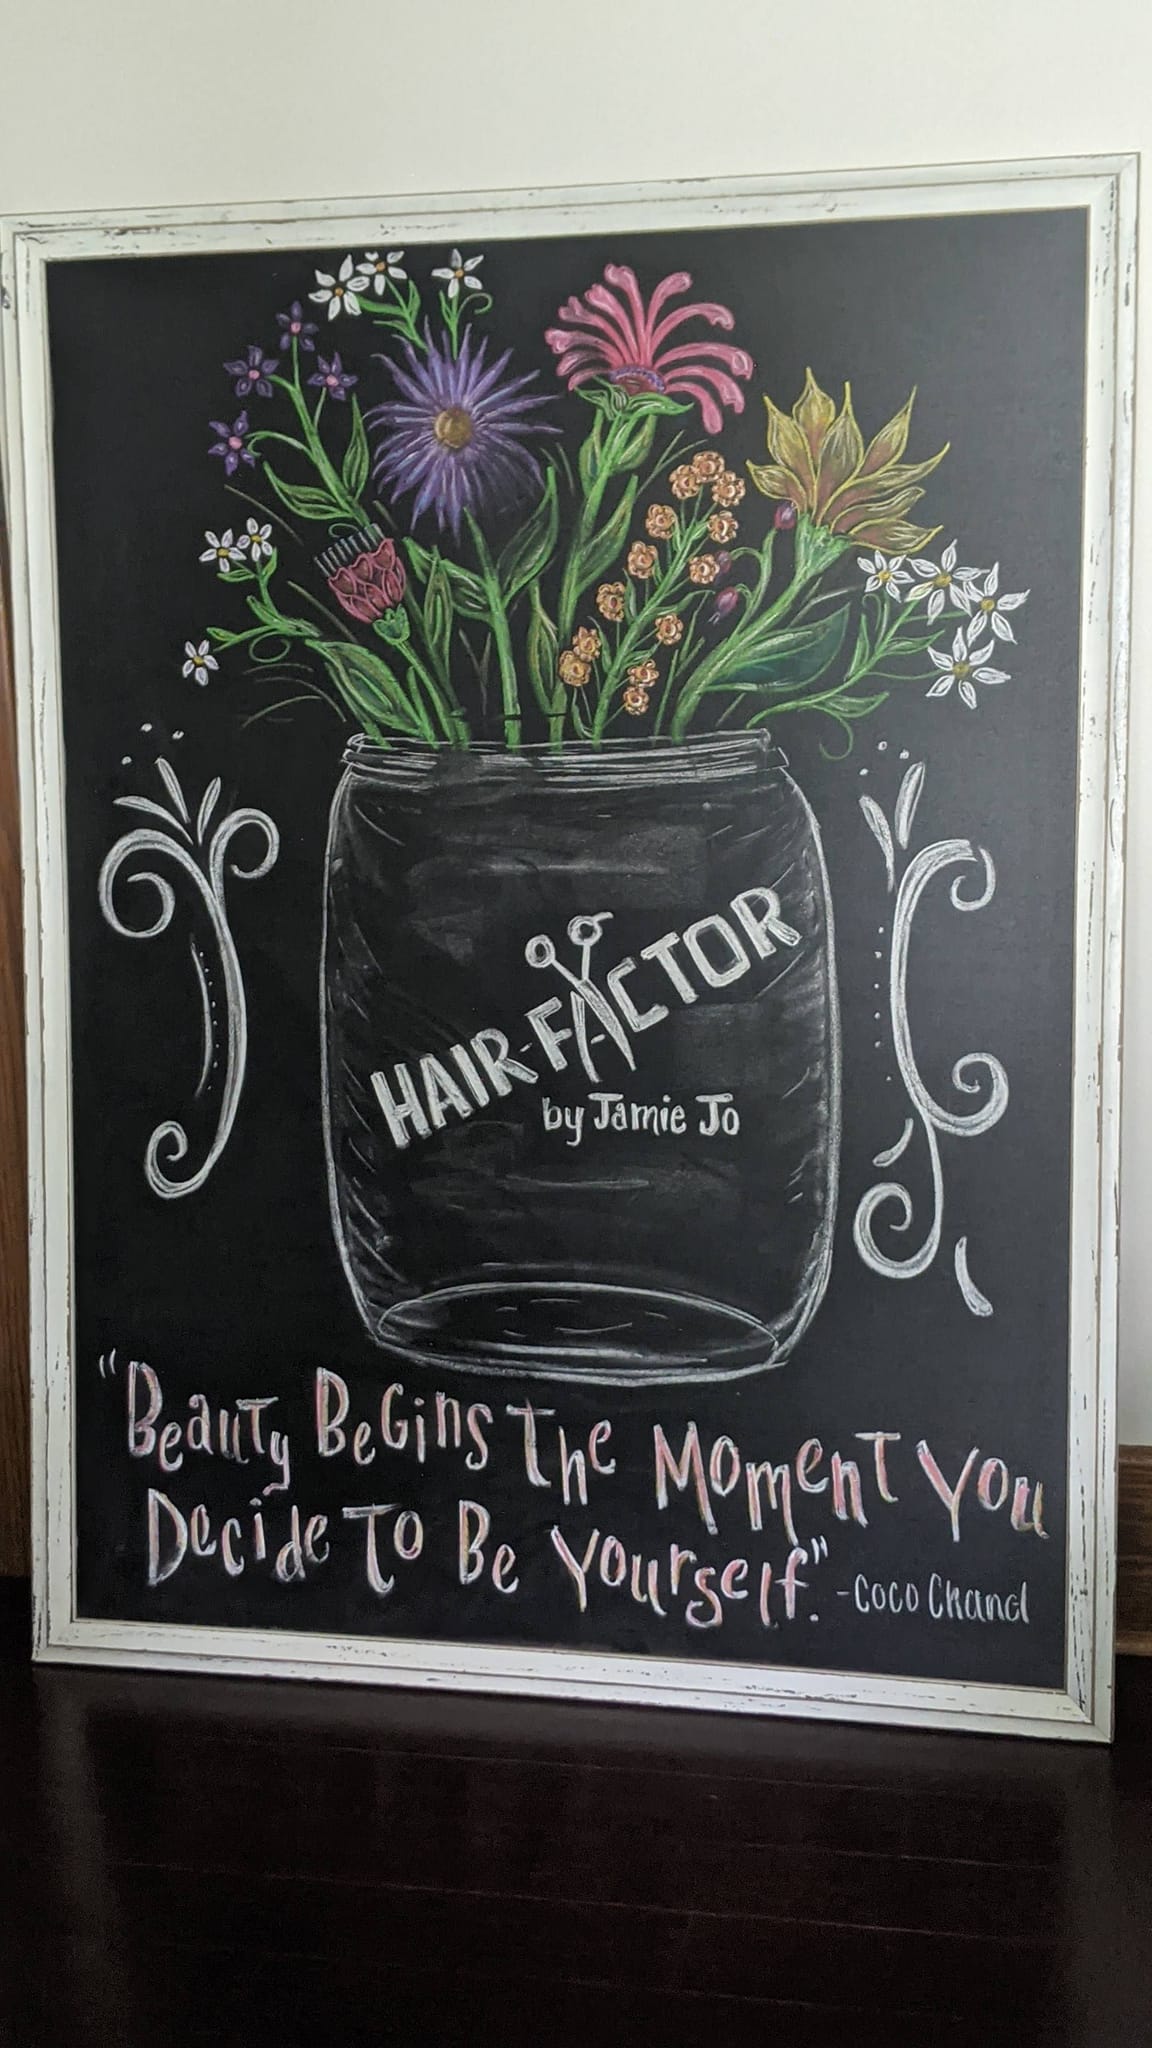 HAIR-FACTOR
by Jamie Jo
"Beauty Begins The Moment You
Decide To Be Yourself." -Coco Chanel